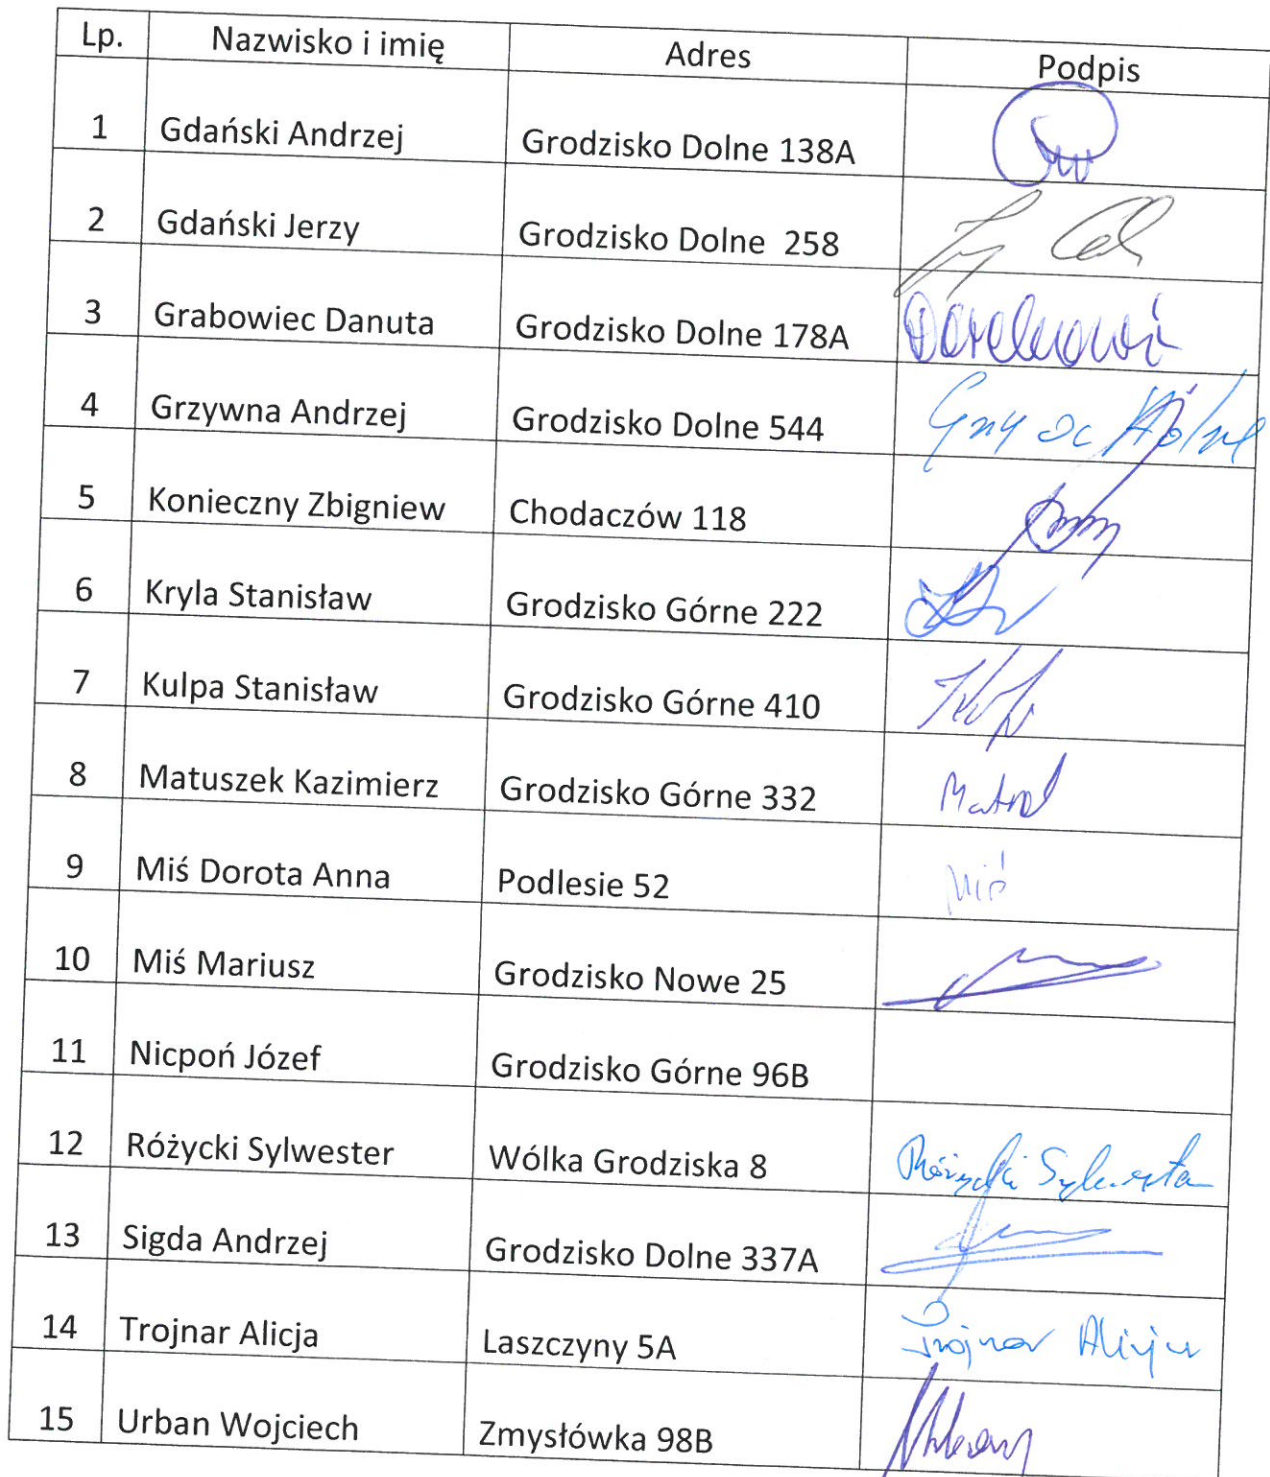 Lp. Nazwisko i imię Adres Podpis
1 Gdański Andrzej Grodzisko Dolne 138A
2 Gdański Jerzy Grodzisko Dolne 258
3 Grabowiec Danuta Grodzisko Dolne 178A
4 Grzywna Andrzej Grodzisko Dolne 544
5 Konieczny Zbigniew Chodaczów 118
6 Kryla Stanisław Grodzisko Górne 222
7 Kulpa Stanisław Grodzisko Górne 410
8 Matuszek Kazimierz Grodzisko Górne 332
9 Miś Dorota Anna Podlesie 52 Miś
10 Miś Mariusz Grodzisko Nowe 25
11 Nicpoń Józef Grodzisko Górne 96B
12 Różycki Sylwester Wólka Grodziska 8 Różycki Sylwester
13 Sigda Andrzej Grodzisko Dolne 337A
14 Trojnar Alicja Laszczyny 5A Trojnar Alicja
15 Urban Wojciech Zmysłówka 98B